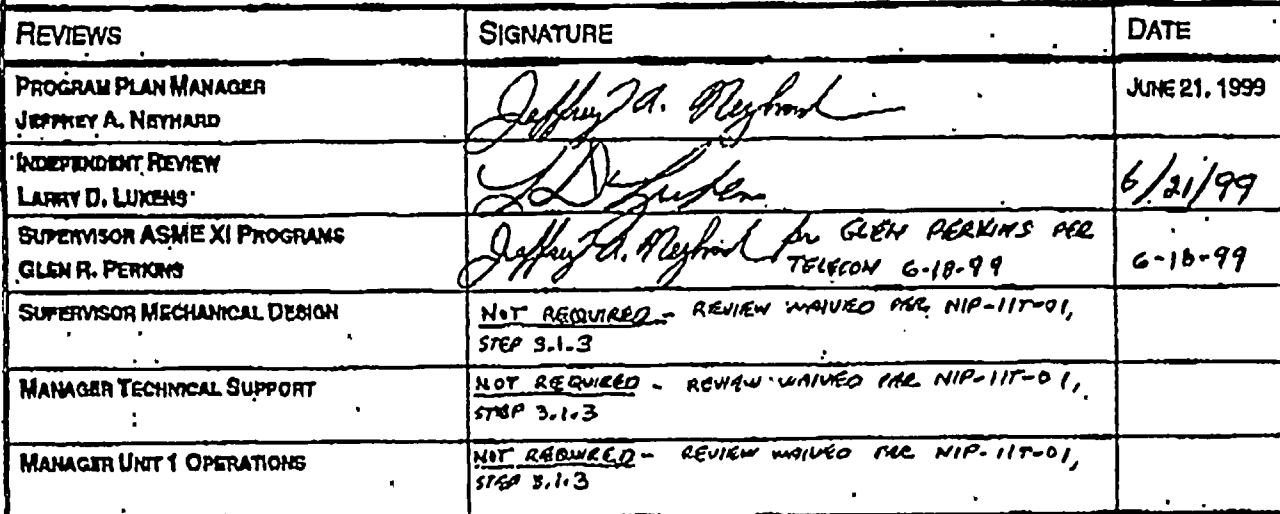 REVIEWS SIGNATURE DATE
PROGRAM PLAN MANAGER
JEFFREY A. NEYHARD
Jeffrey A. Neyhard
JUNE 21, 1999
INDEPENDENT REVIEW
LARRY D. LUKENS
L D Lukens
6/21/99
SUPERVISOR ASME XI PROGRAMS
GLEN R. PERKINS
Jeffrey A. Neyhard for GLEN PERKINS PER
TELECON 6-18-99
6-18-99
SUPERVISOR MECHANICAL DESIGN
NOT REQUIRED - REVIEW WAIVED PER NIP-IIT-01,
STEP 3.1.3
MANAGER TECHNICAL SUPPORT
NOT REQUIRED - REVIEW WAIVED PER NIP-IIT-01,
STEP 3.1.3
MANAGER UNIT 1 OPERATIONS
NOT REQUIRED - REVIEW WAIVED PER NIP-IIT-01,
STEP 3.1.3